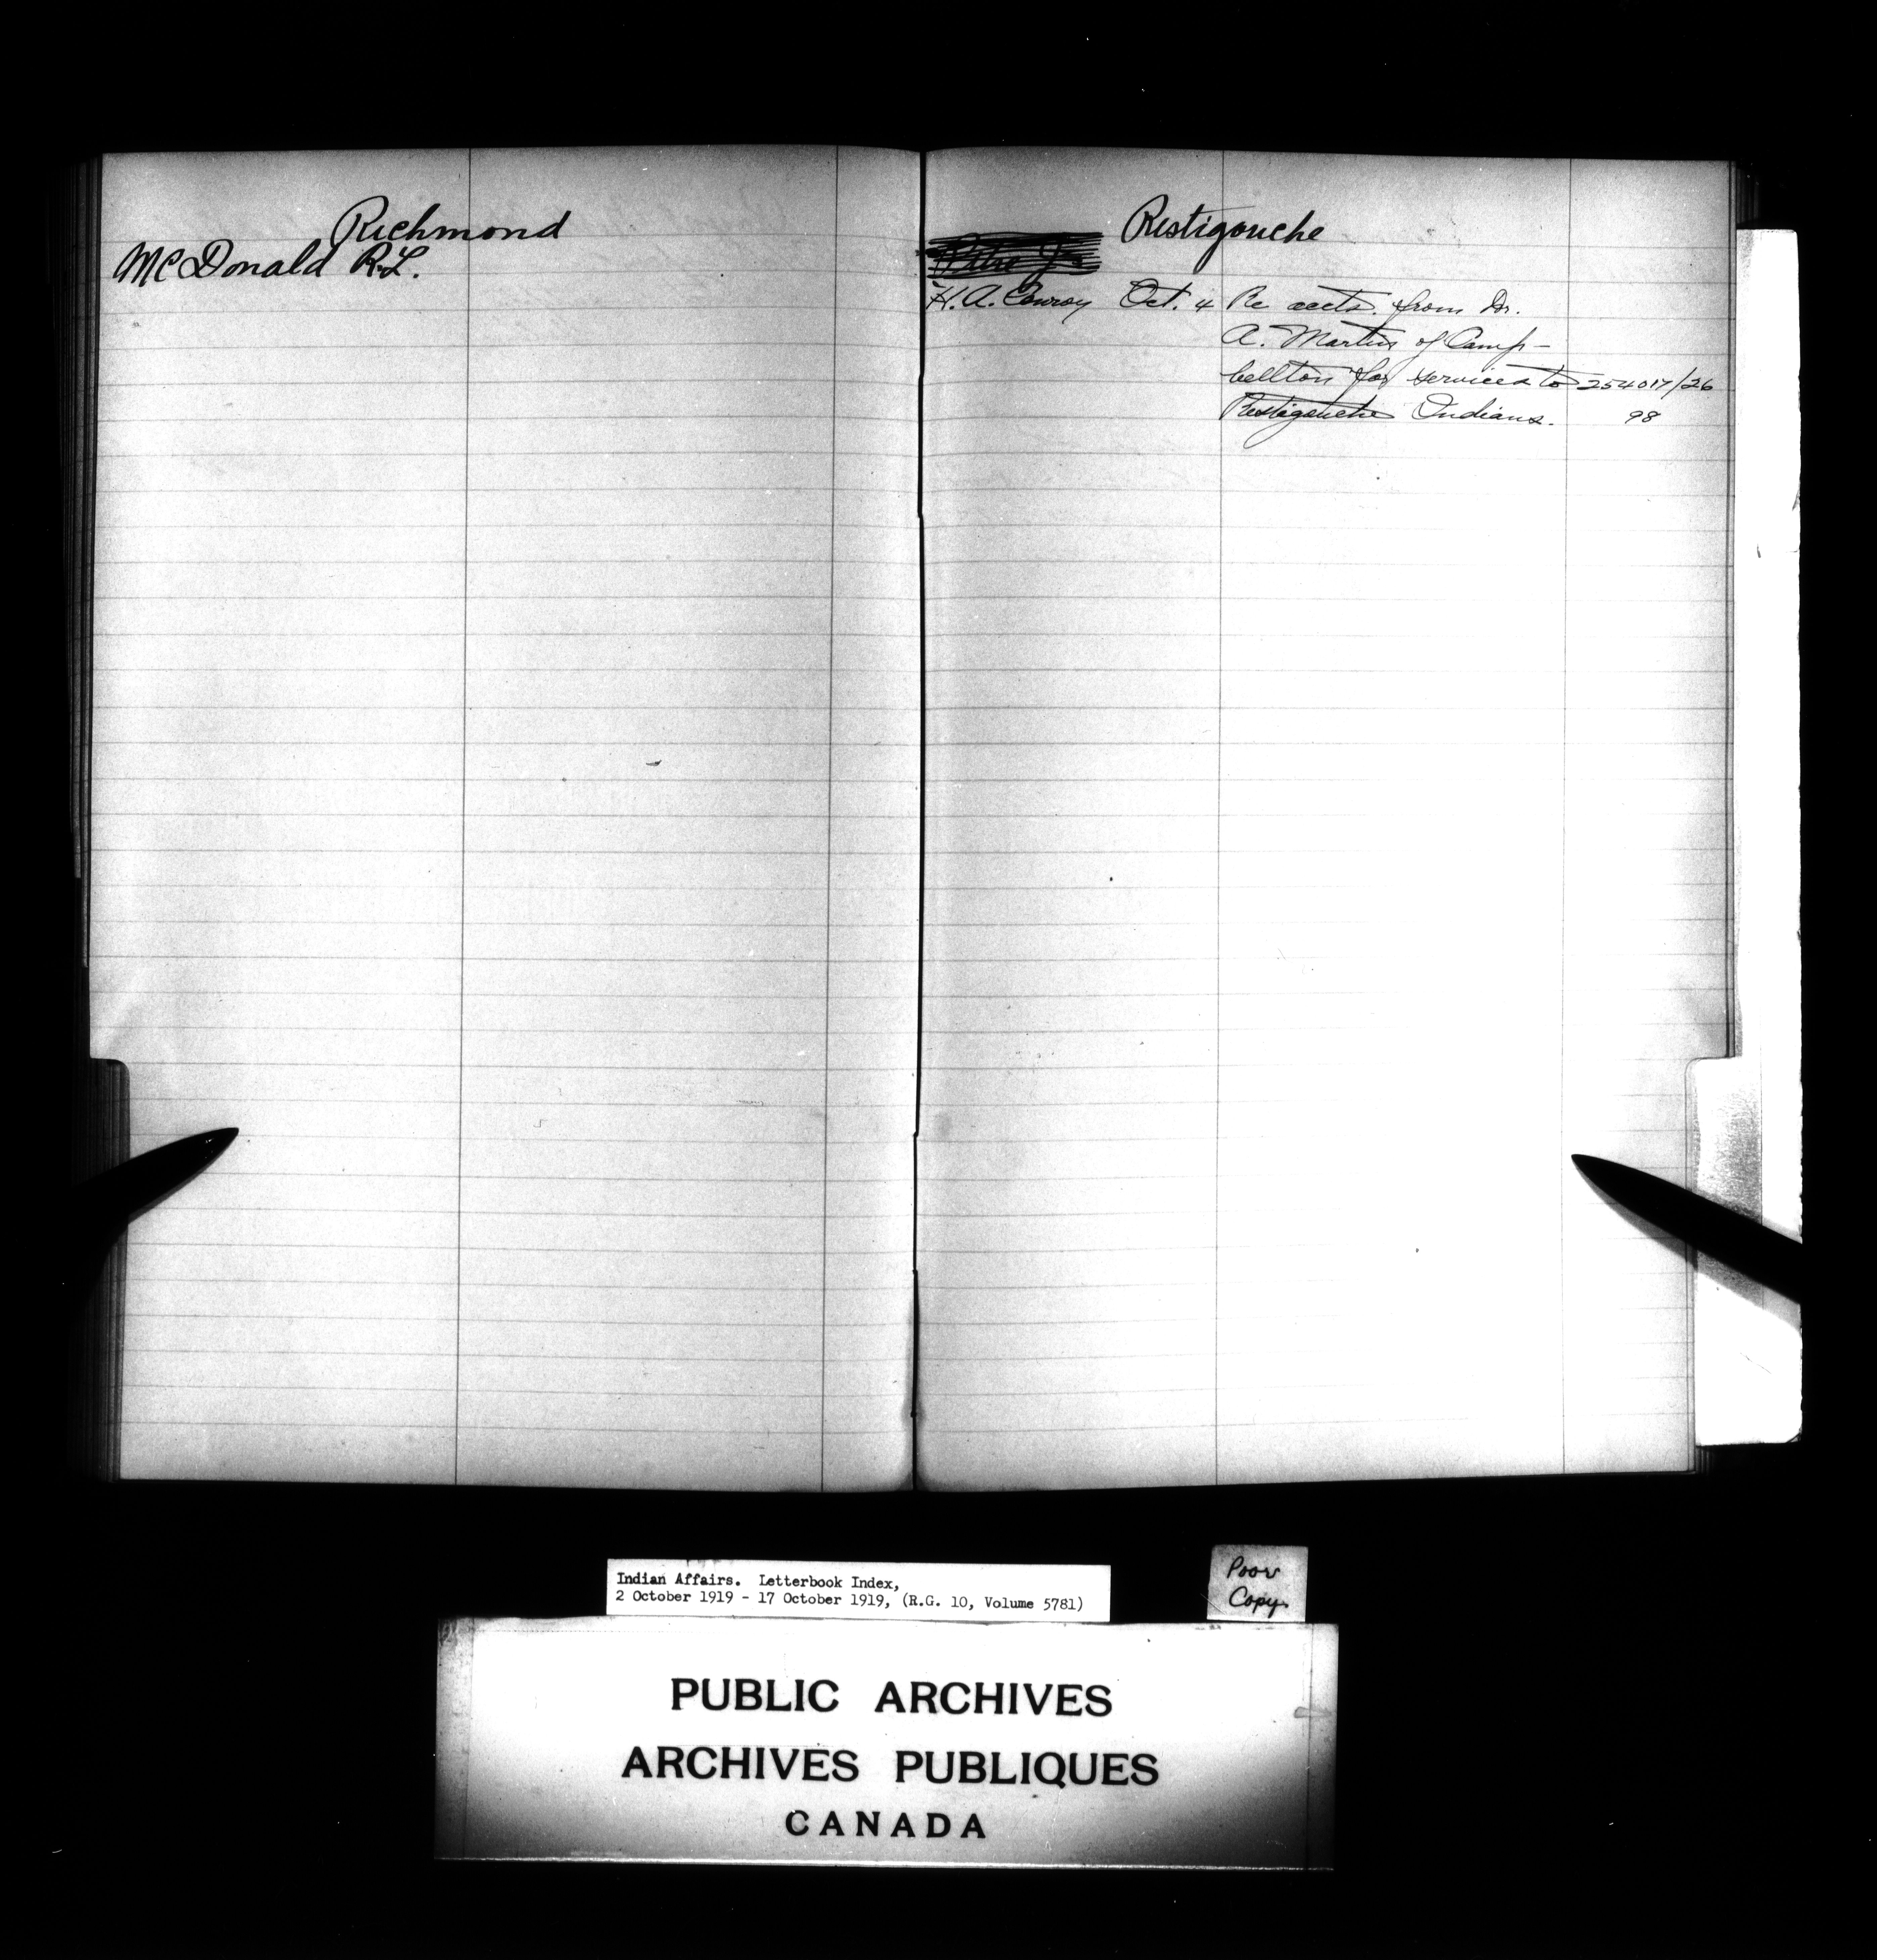 Richmond
McDonald R.L.
Restigouche
H.A. Conroy Oct. 4 Re accts. from Dr.
A. Martin of Camp-
bellton for services to 254017/26
Restigouche Indians. 98
Indian Affairs. Letterbook Index,
2 October 1919 - 17 October 1919, (R.G. 10, Volume 5781)
Poor
Copy.
PUBLIC ARCHIVES
ARCHIVES PUBLIQUES
CANADA